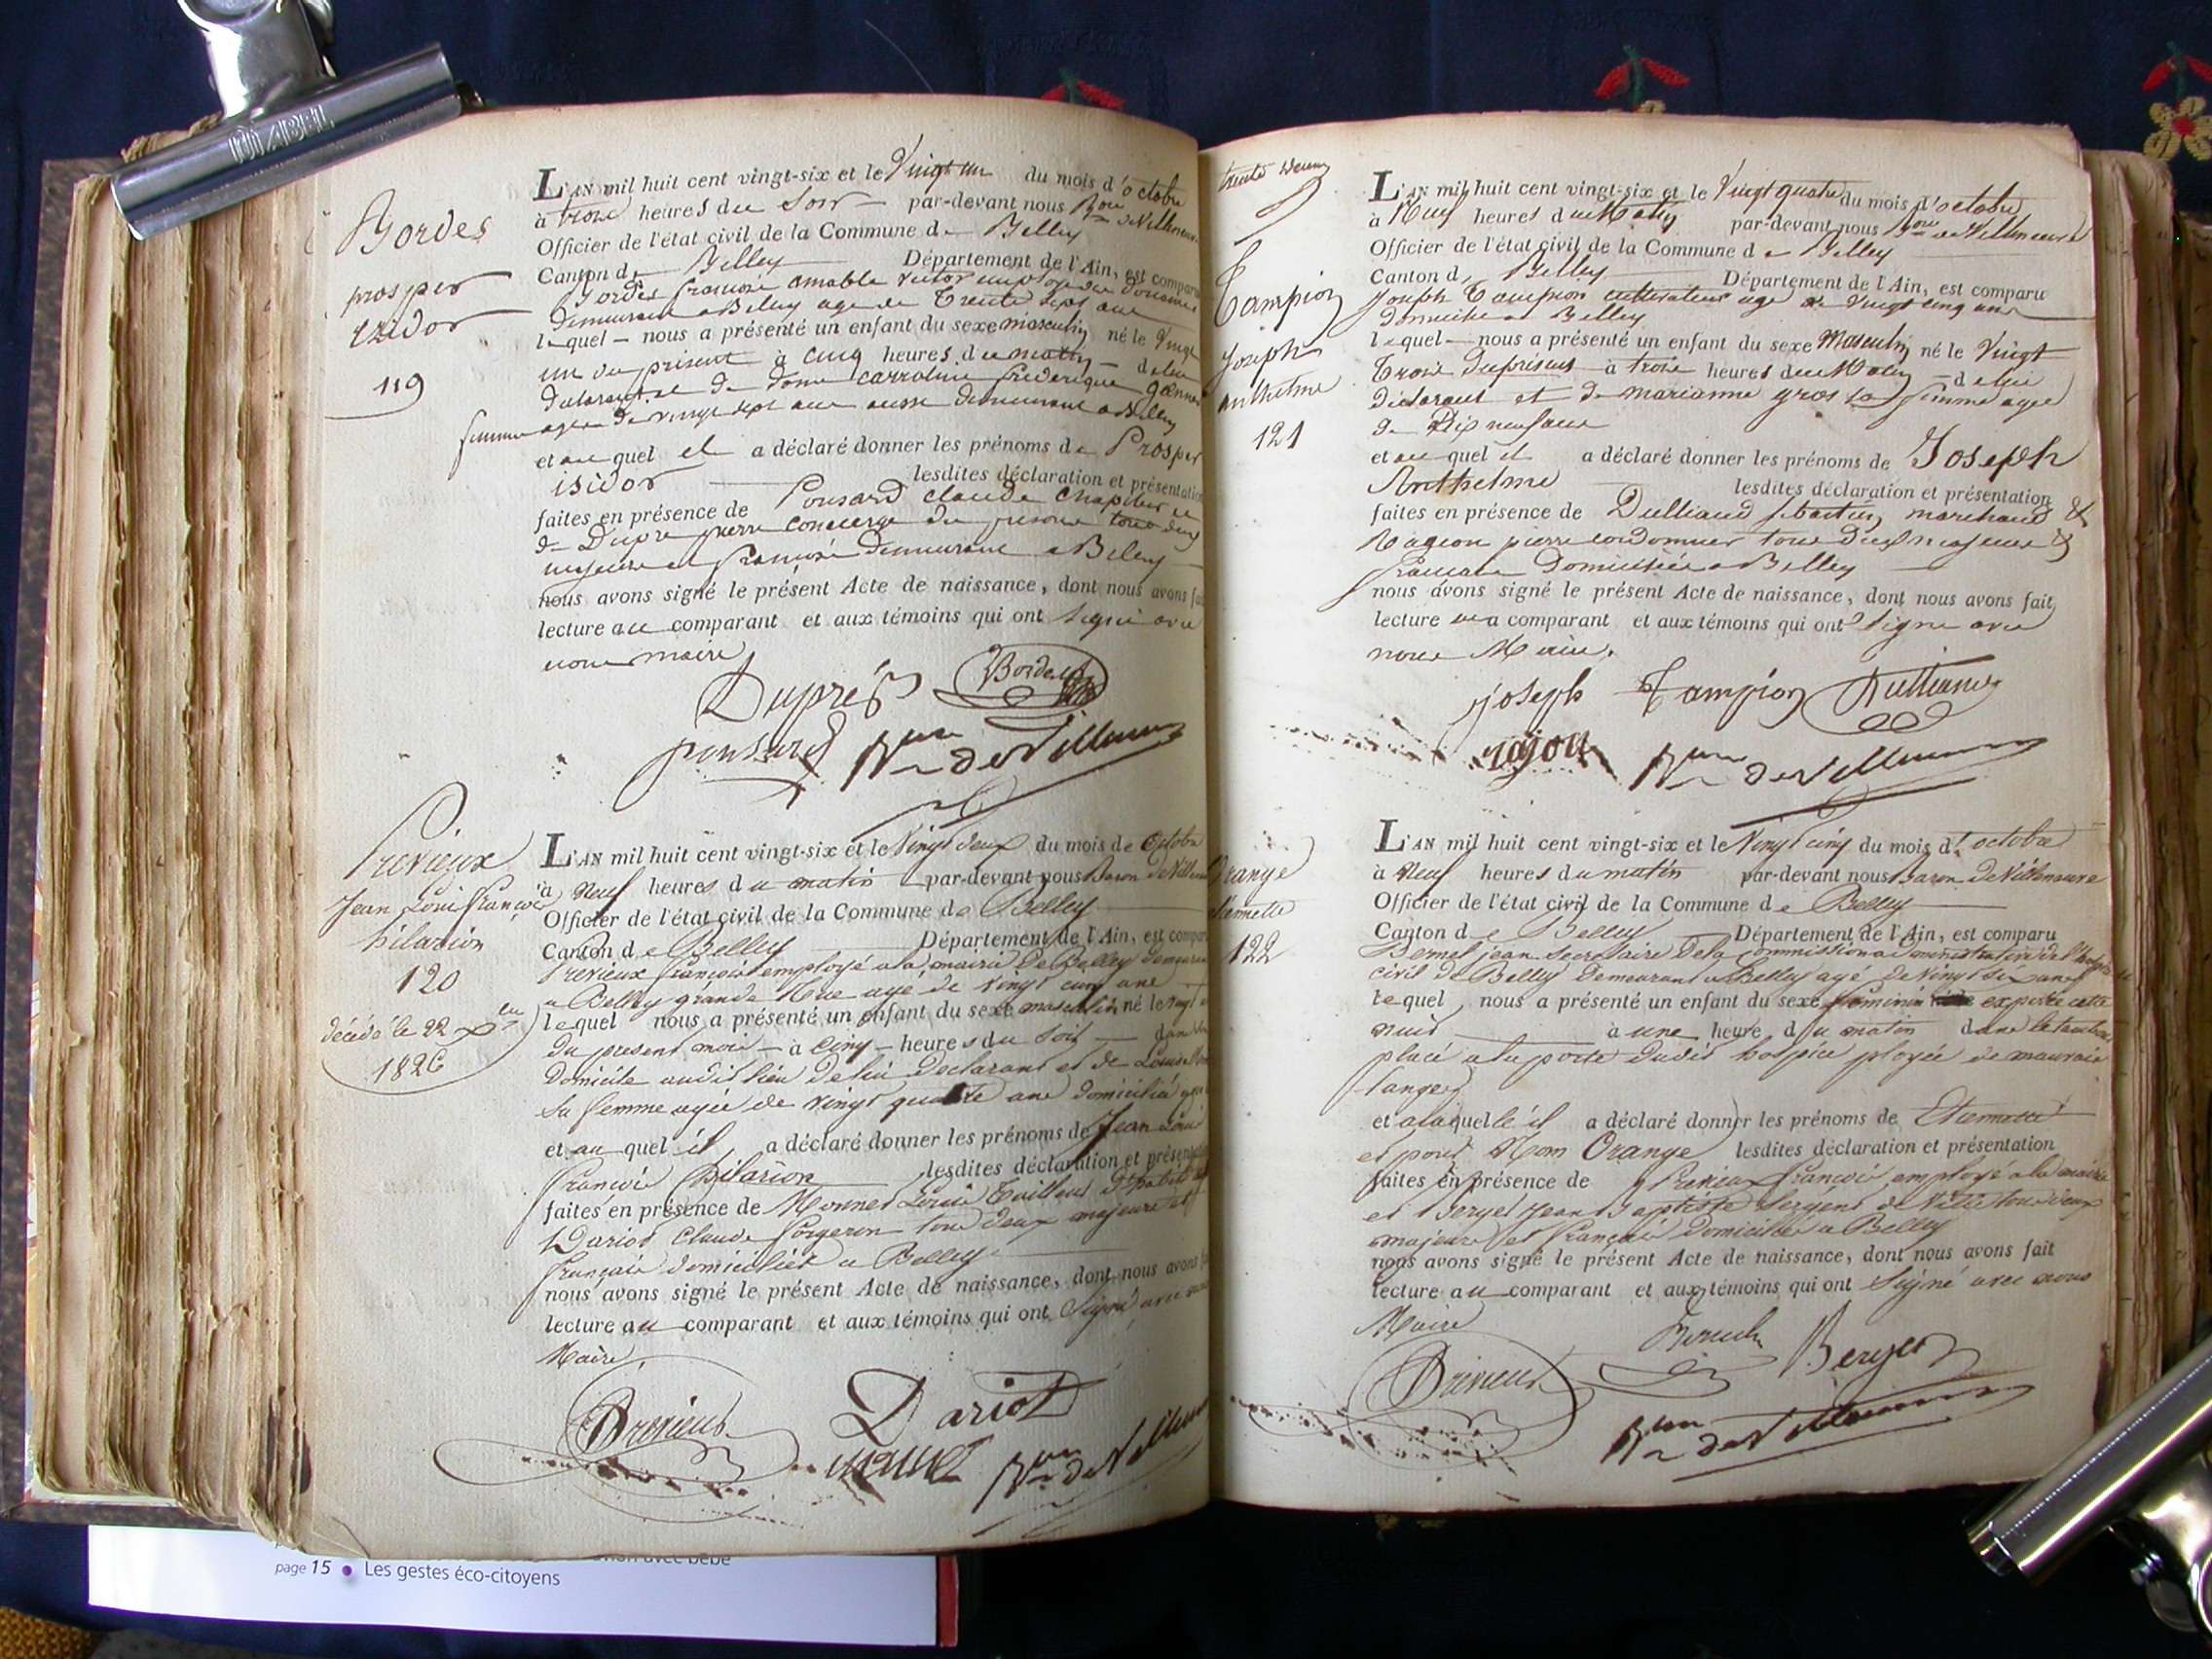 DIABEL
Bordes
prosper
izidor
119
L'AN mil huit cent vingt-six et le Vingt un du mois d'octobre
à trois heures du Soir par-devant nous Bon de Villeneuve
Officier de l'état civil de la Commune de Belley
Canton de Belley Département de l'Ain, est comparu
Bordes françois amable victor employé des Douanes
demeurant a Belley age de Trente sept ans
lequel nous a présenté un enfant du sexe masculin né le Vingt
un du présent à cinq heures du matin de lui
declarant et de dame carroline frederique
femme agée de vingt sept ans aussi demeurant a Belley
et au quel il a déclaré donner les prénoms de Prosper
isidor lesdites déclaration et présentation
faites en présence de Ponsard claude chapelier et
de Dupré pierre concierge des prisons tous deux
majeurs et françois demeurant a Belley
nous avons signé le présent Acte de naissance, dont nous avons fait
lecture au comparant et aux témoins qui ont signé avec
nous maire
Dupré Bordes
ponsard Bon de Villeneuve
Previeux
Jean Loui françois
hilarion
120
décédé le 22
1826
L'AN mil huit cent vingt-six et le Vingt deux du mois de Octobre
à Neuf heures du matin par-devant nous Baron de Villeneuve
Officier de l'état civil de la Commune de Belley
Canton de Belley Département de l'Ain, est comparu
Previeux françois employé a la mairie de Belley demeurant
a Belley grande Rue age de vingt cinq ans
lequel nous a présenté un enfant du sexe masculin né le vingt
du present mois à Cinq heures du Soir dans
domicile audit lieu de lui Declarant et de Louise
sa femme agée de vingt quatre ans domiciliée
et au quel il a déclaré donner les prénoms de Jean Loui
françois hilarion lesdites déclaration et présentation
faites en présence de Monnet Louis Tailleur d'habits
Dariot Claude forgeron tous deux majeurs et
français domiciliés a Belley
nous avons signé le présent Acte de naissance, dont nous avons
lecture au comparant et aux témoins qui ont Signé avec nous
Maire
Previeux Dariot
Bon de Villeneuve
trente deux
Tampion
Joseph
anthelme
121
L'AN mil huit cent vingt-six et le Vingt quatre du mois d'octobre
à Neuf heures du Matin par-devant nous Bon de Villeneuve
Officier de l'état civil de la Commune de Belley
Canton de Belley Département de l'Ain, est comparu
Joseph Tampion cultivateur age de vingt cinq ans
domicilié a Belley
lequel nous a présenté un enfant du sexe Masculin né le Vingt
Trois du présent à trois heures du Matin de lui
déclarant et de marianne gros sa femme agée
de Dix neuf ans
et au quel il a déclaré donner les prénoms de Joseph
Anthelme lesdites déclaration et présentation
faites en présence de Dulliand sebastien marchand &
Rageon pierre cordonnier tous deux majeurs &
français Domiciliés a Belley
nous avons signé le présent Acte de naissance, dont nous avons fait
lecture au comparant et aux témoins qui ont Signé avec
nous Maire.
joseph Tampion Dulliand
rajon Bon de Villeneuve
Orange
Etiennette
122
L'AN mil huit cent vingt-six et le Vingt cinq du mois d'octobre
à Neuf heures du matin par-devant nous Baron de Villeneuve
Officier de l'état civil de la Commune de Belley
Canton de Belley Département de l'Ain, est comparu
jean Secretaire de la Commission administrative de l'hospice
civil de Belley demeurant a Belley agé de Vingt six ans
lequel nous a présenté un enfant du sexe féminin exposée cette
nuit à une heure du matin dans le tambour
placé a la porte dudit hospice ployée de mauvais
langes
et a laquelle il a déclaré donner les prénoms de Etiennette
et pour Nom Orange lesdites déclaration et présentation
faites en présence de Previeux françois employé a la mairie
et Berger Jean Baptiste Sergent de Ville tous deux
majeurs et français domiciliés a Belley
nous avons signé le présent Acte de naissance, dont nous avons fait
lecture au comparant et aux témoins qui ont Signé avec nous
Maire
Previeux Berger
Bon de Villeneuve
page 15 • Les gestes éco-citoyens